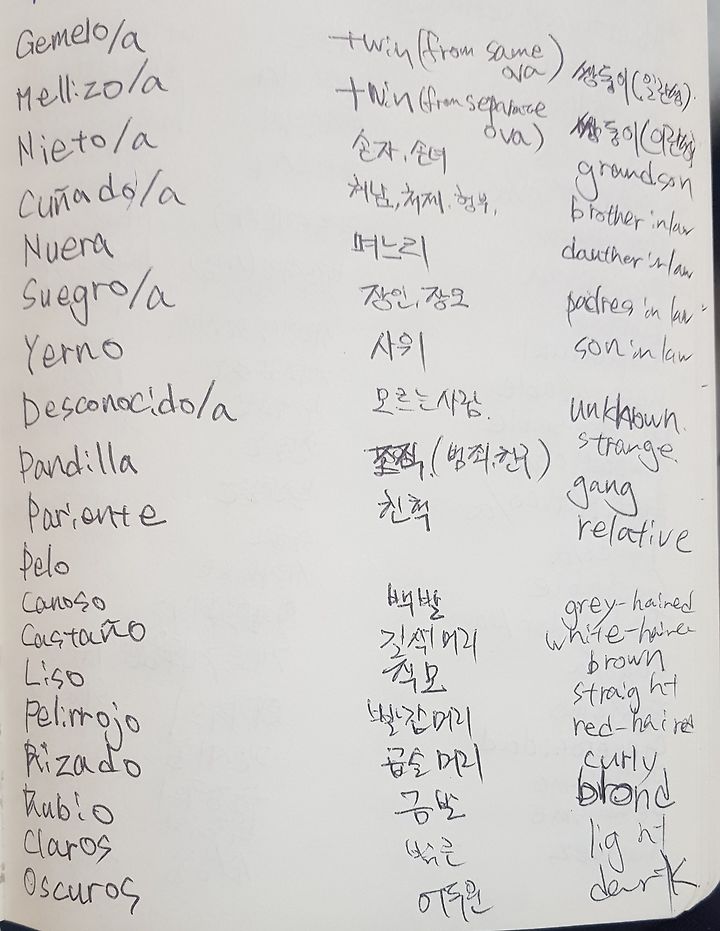 Gemelo/a twin (from same ova) 쌍둥이(일란성)
Mellizo/a twin (from separate ova) 쌍둥이(이란성)
Nieto/a 손자, 손녀 grandson
Cuñado/a 처남, 처제, 형부, brother in law
Nuera 며느리 dauther in law
Suegro/a 장인, 장모 padres in law
Yerno 사위 son in law
Desconocido/a 모르는 사람. unknown. strange
Pandilla (범죄, 친구) gang
Pariente 친척 relative
Pelo
Canoso 백발 grey-haired white-haired
Castaño 갈색 머리 brown
Liso 직모 straight
Pelirrojo 빨강 머리 red-haired
Rizado 곱슬 머리 curly
Rubio 금발 blond
Claros 밝은 light
Oscuros 어두운 dark